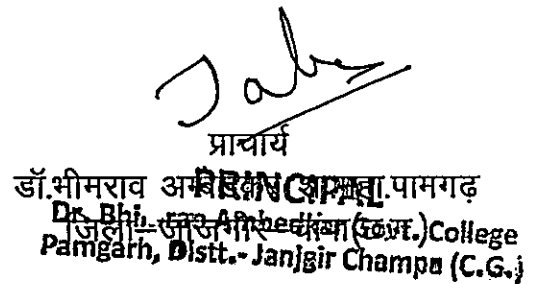 प्राचार्य
डॉ.भीमराव अम्बेडकर शा.महा.पामगढ़
PRINCIPAL
जिला–जांजगीर–चांपा
Dr. Bhi Ambedkar (Govt.) College
Pamgarh, Distt.- Janjgir Champa (C.G.)